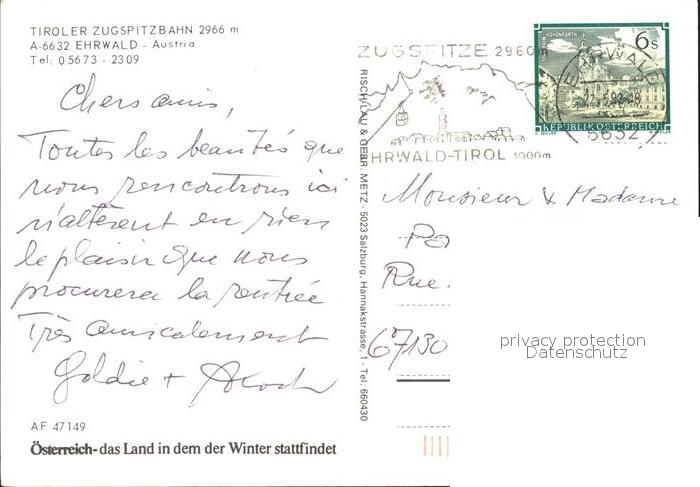 TIROLER ZUGSPITZBAHN 2966 m
A-6632 EHRWALD - Austria
Tel: 05673 - 2309
Chers amis,
Toutes les beautés que
nous rencontrons ici
n'altèrent en rien
le plaisir que nous
procurera la rentrée
Très amicalement
Goldie +
AF 47149
Österreich-das Land in dem der Winter stattfindet
RISCH-LAU & GEBR. METZ - 5023 Salzburg, Hannakstrasse, 1 - Tel. 660430
ZUGSPITZE 2960m
EHRWALD-TIROL 1000m
6s
REPUBLIK ÖSTERREICH
EHRWALD
6632
Monsieur & Madame
Rue
67130
privacy protection
Datenschutz